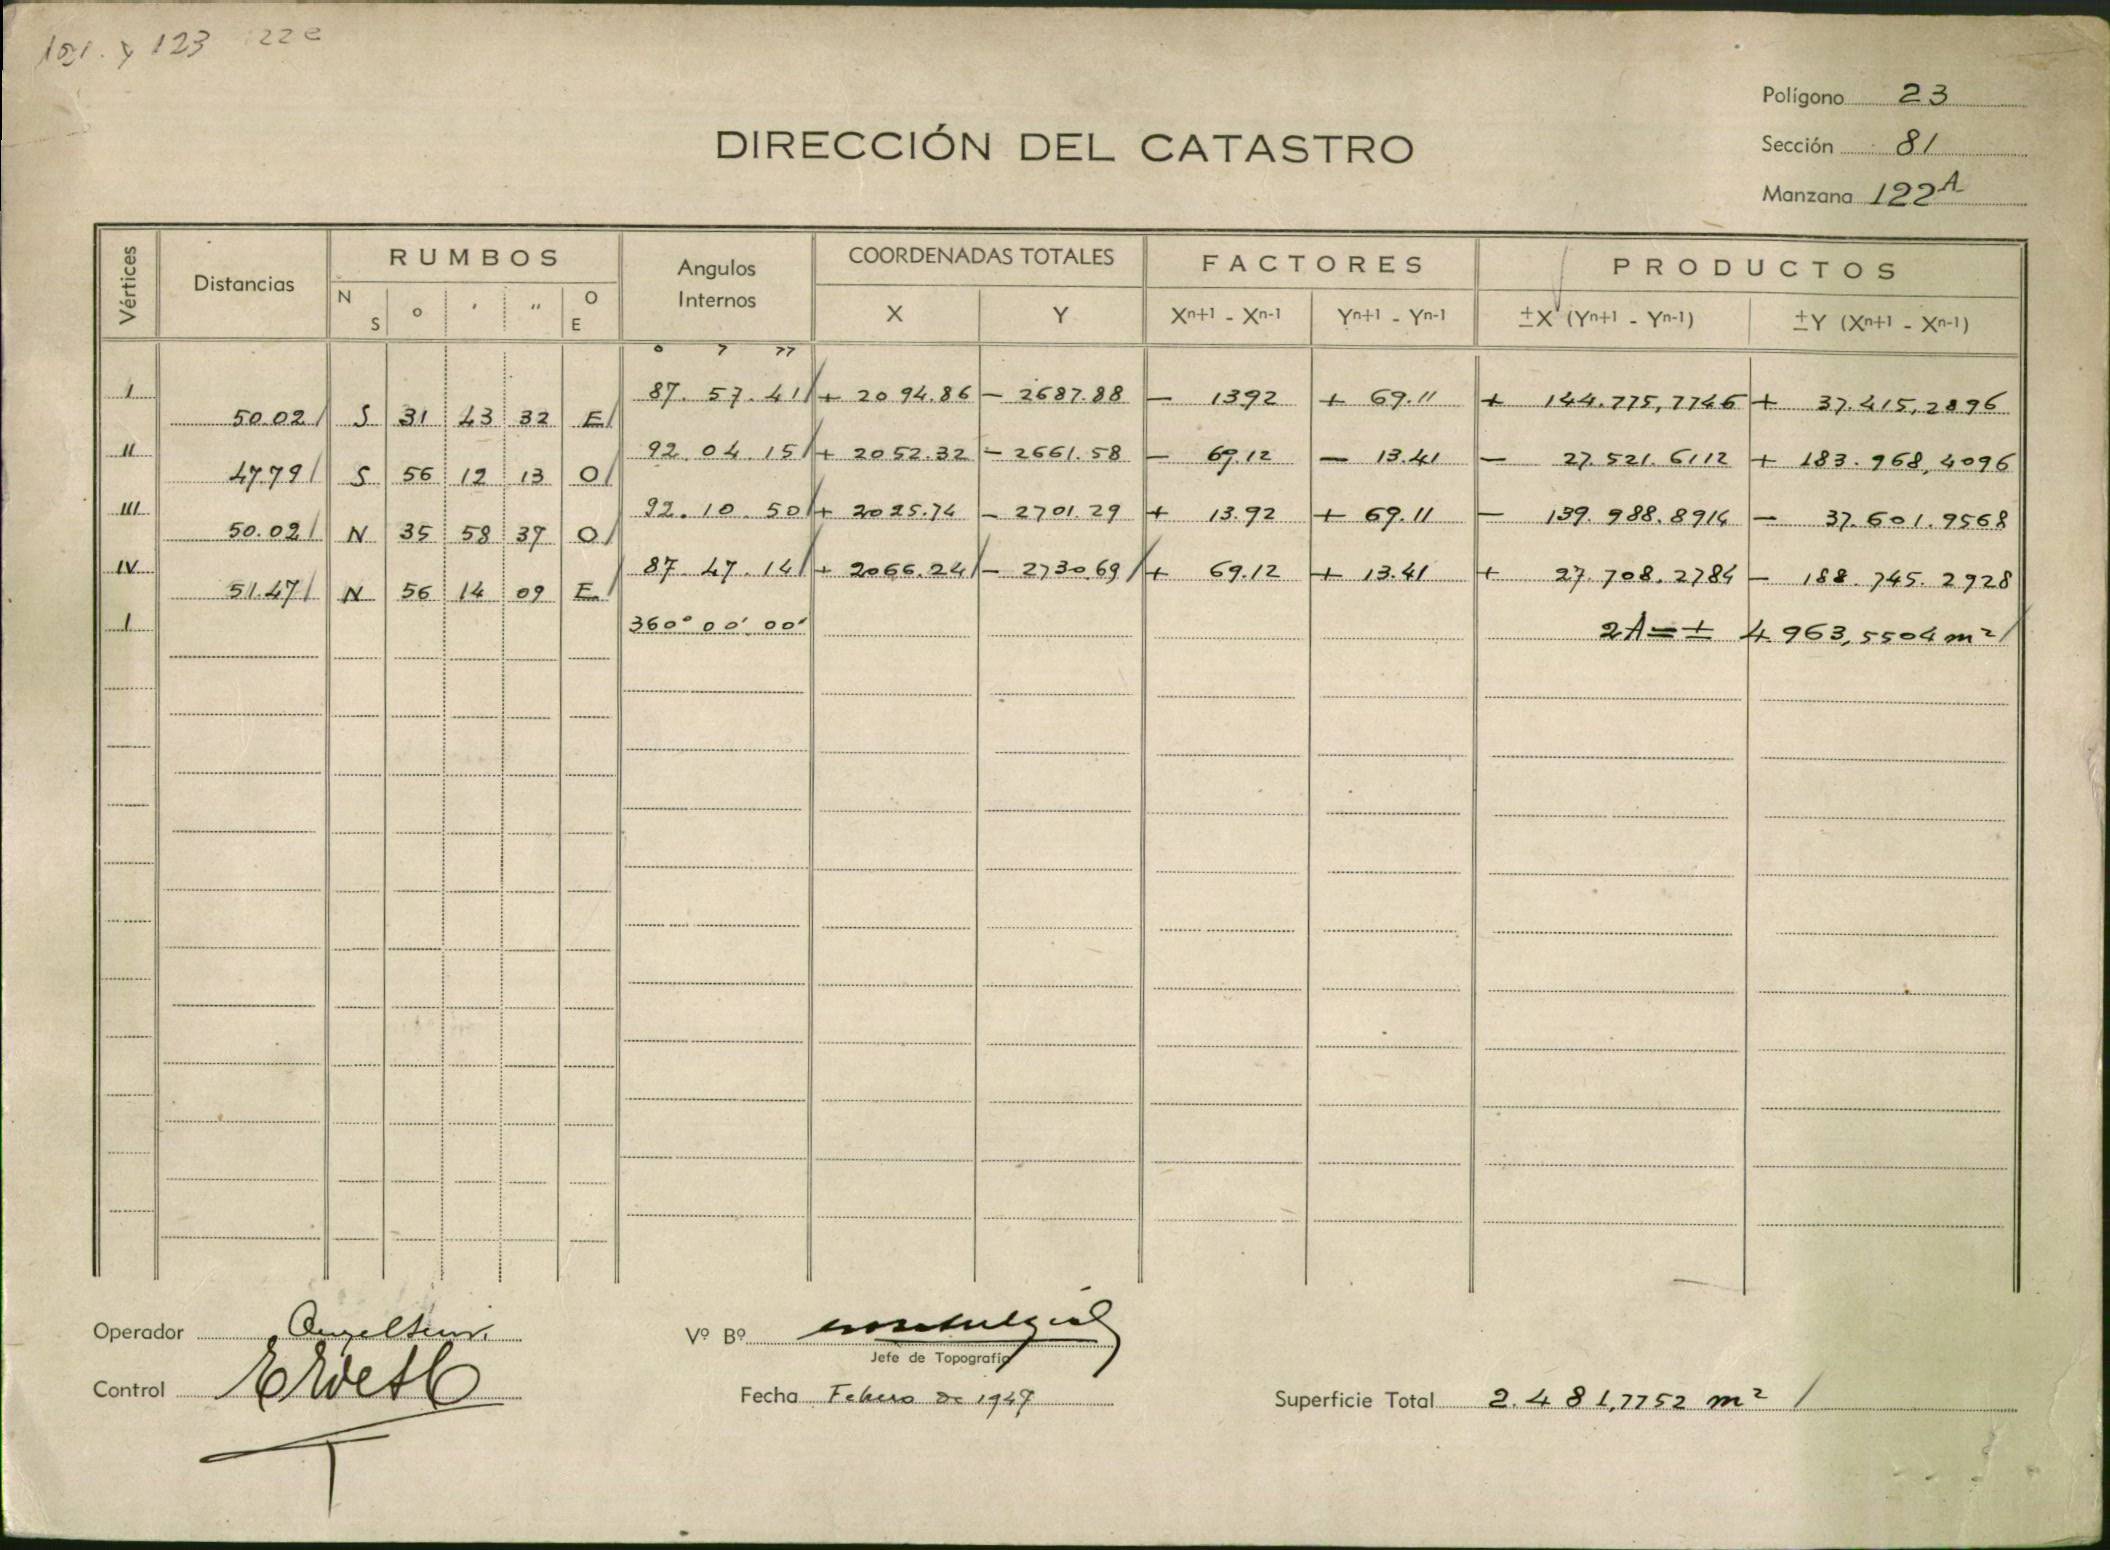 123 22 e
Polígono 23
DIRECCIÓN DEL CATASTRO
Sección 81
Manzana 122 A
Vértices Distancias RUMBOS Angulos Internos COORDENADAS TOTALES FACTORES PRODUCTOS
N S ° ' " O E X Y Xn+1 - Xn-1 Yn+1 - Yn-1 ±X (Yn+1 - Yn-1) ±Y (Xn+1 - Xn-1)
° ' "
I 87. 57. 41 + 2094.86 - 2687.88 - 13.92 + 69.11 + 144.775,7746 + 37.415,2896
50.02 S 31 43 32 E
II 92. 04. 15 + 2052.32 - 2661.58 - 69.12 - 13.41 - 27.521.6112 + 183.968,4096
47.79 S 56 12 13 O
III 92. 10. 50 + 2025.74 - 2701.29 + 13.92 + 69.11 - 139.988.8914 - 37.601.9568
50.02 N 35 58 37 O
IV 87. 47. 14 + 2066.24 - 2730.69 + 69.12 + 13.41 + 27.708.2784 - 188.745.2928
51.47 N 56 14 09 E
I 360° 00' 00' 2A = ± 4963,5504 m²
Operador
Vº Bº
Jefe de Topografía
Control
Fecha Febero de 1947
Superficie Total 2.481,7752 m²